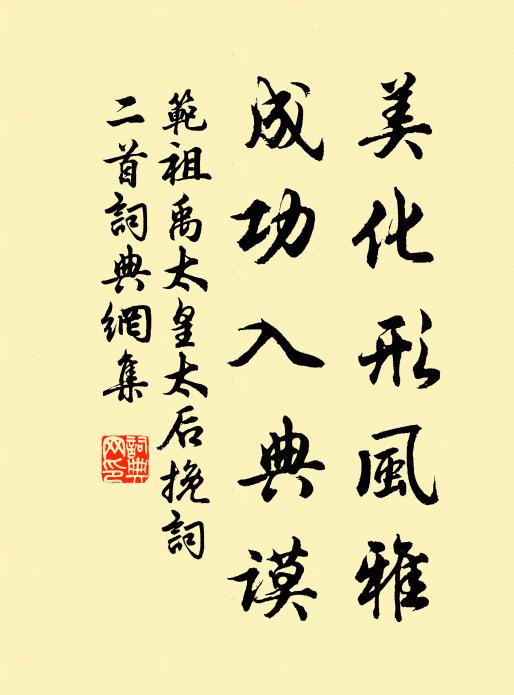 美化形風雅
成功入典謨
範祖禹太皇太后挽詞
二首詞典網集
詞典
网印